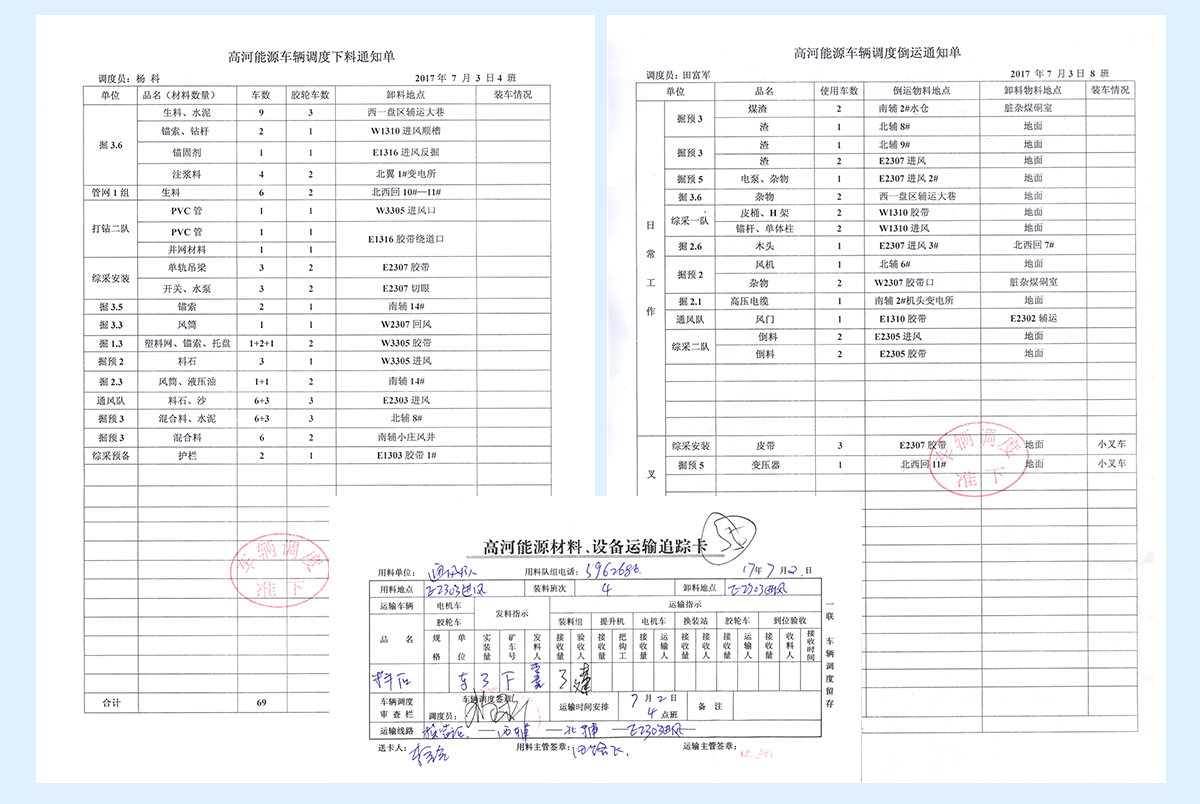 高河能源车辆调度下料通知单
调度员：杨 科 2017 年 7 月 3 日 4 班
单位 品名（材料数量） 车数 胶轮车数 卸料地点 装车情况
掘 3.6 生料、水泥 9 3 西一盘区辅运大巷
锚索、钻杆 2 1 W1310 进风顺槽
锚固剂 1 1 E1316 进风反掘
注浆料 4 2 北翼 1#变电所
管网 1 组 生料 6 2 北西回 10#—11#
打钻二队 PVC 管 1 1 W3305 进风口
PVC 管 1 1 E1316 胶带绕道口
并网材料 1 1
综采安装 单轨吊梁 3 2 E2307 胶带
开关、水泵 3 2 E2307 切眼
掘 3.5 锚索 2 1 南辅 14#
掘 3.3 风筒 1 1 W2307 回风
掘 1.3 塑料网、锚索、托盘 1+2+1 2 W3305 胶带
掘预 2 料石 3 1 W3305 进风
掘 2.3 风筒、液压油 1+1 2 南辅 14#
通风队 料石、沙 6+3 3 E2303 进风
掘预 3 混合料、水泥 6+3 3 北辅 8#
掘预 3 混合料 6 2 南辅小庄风井
综采预备 护栏 2 1 E1303 胶带 1#
车辆调度
准下
合计 69
高河能源车辆调度倒运通知单
调度员：田富军 2017 年 7 月 3 日 8 班
单位 品名 使用车数 倒运物料地点 卸料物料地点 装车情况
日常工作
掘预 3 煤渣 2 南辅 2#水仓 脏杂煤硐室
渣 1 北辅 8# 地面
掘预 3 渣 1 北辅 9# 地面
渣 2 E2307 进风 地面
掘预 5 电泵、杂物 1 E2307 进风 2# 地面
掘 3.6 杂物 2 西一盘区辅运大巷 地面
综采一队 皮桶、H 架 2 W1310 胶带 地面
锚杆、单体柱 2 W1310 进风 地面
掘 2.6 木头 1 E2307 进风 3# 北西回 7#
掘预 2 风机 1 北辅 6# 地面
杂物 2 W2307 胶带口 脏杂煤硐室
掘 2.1 高压电缆 1 南辅 2#机头变电所 地面
通风队 风门 1 E1310 胶带 E2302 辅运
综采二队 倒料 2 E2305 进风 地面
倒料 2 E2305 胶带 地面
叉
综采安装 皮带 3 E2307 胶带 地面 小叉车
掘预 5 变压器 1 北西回 11# 地面 小叉车
车辆调度
准下
高河能源材料、设备运输追踪卡
用料单位：通风队 用料队组电话：5962686 17年 7 月 2 日
用料地点 E2303进风 装料班次 4 卸料地点 E2303进风
运输车辆 电机车 发料指示 运输指示
胶轮车 装料组 提升机 电机车 换装站 胶轮车 到位验收
品名 规格 单位 实装量 矿车号 发料人 接收量 验收人 接收量 把钩工 接收量 运输人 接收量 接收人 接收量 运输人 接收量 收料人 接收时间
料石 车 3 下 3
车辆调度审查栏 车辆调度签章： 调度员： 运输时间安排 7 月 2 日 4 点班 备注
运输线路 —西辅—北辅—E2303进风
送卡人： 用料主管签章： 运输主管签章：
一联 车辆调度留存